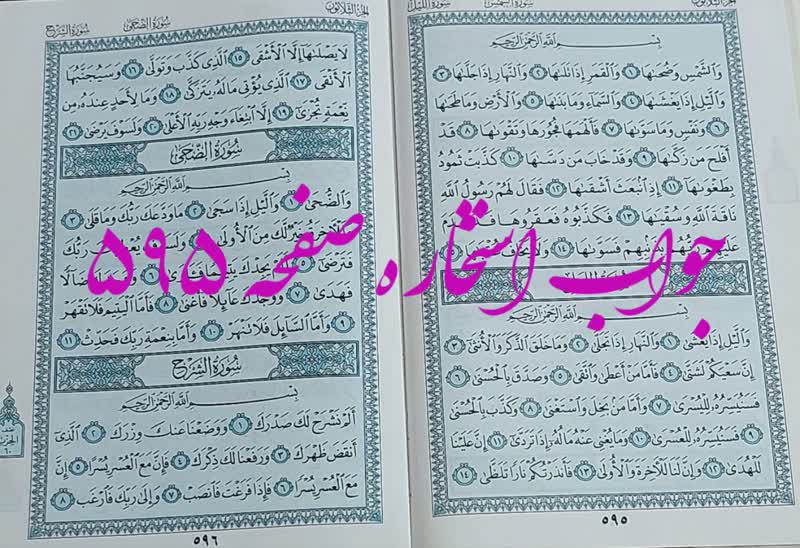 الجزء الثلاثون
سورة الشمس
سورة الليل
بِسْمِ اللَّهِ الرَّحْمَٰنِ الرَّحِيمِ
وَالشَّمْسِ وَضُحَىٰهَا ١ وَالْقَمَرِ إِذَا تَلَىٰهَا ٢ وَالنَّهَارِ إِذَا جَلَّىٰهَا ٣
وَاللَّيْلِ إِذَا يَغْشَىٰهَا ٤ وَالسَّمَاءِ وَمَا بَنَىٰهَا ٥ وَالْأَرْضِ وَمَا طَحَىٰهَا
٦ وَنَفْسٍ وَمَا سَوَّىٰهَا ٧ فَأَلْهَمَهَا فُجُورَهَا وَتَقْوَىٰهَا ٨ قَدْ
أَفْلَحَ مَن زَكَّىٰهَا ٩ وَقَدْ خَابَ مَن دَسَّىٰهَا ١٠ كَذَّبَتْ ثَمُودُ
بِطَغْوَىٰهَا ١١ إِذِ انبَعَثَ أَشْقَىٰهَا ١٢ فَقَالَ لَهُمْ رَسُولُ اللَّهِ
نَاقَةَ اللَّهِ وَسُقْيَٰهَا ١٣ فَكَذَّبُوهُ فَعَقَرُوهَا
فَسَوَّىٰهَا ١٤
جواب استخاره صفحه ۵۹۵
بِسْمِ اللَّهِ الرَّحْمَٰنِ الرَّحِيمِ
وَاللَّيْلِ إِذَا يَغْشَىٰ ١ وَالنَّهَارِ إِذَا تَجَلَّىٰ ٢ وَمَا خَلَقَ الذَّكَرَ وَالْأُنثَىٰ ٣
إِنَّ سَعْيَكُمْ لَشَتَّىٰ ٤ فَأَمَّا مَنْ أَعْطَىٰ وَاتَّقَىٰ ٥ وَصَدَّقَ بِالْحُسْنَىٰ ٦
فَسَنُيَسِّرُهُ لِلْيُسْرَىٰ ٧ وَأَمَّا مَن بَخِلَ وَاسْتَغْنَىٰ ٨ وَكَذَّبَ بِالْحُسْنَىٰ
٩ فَسَنُيَسِّرُهُ لِلْعُسْرَىٰ ١٠ وَمَا يُغْنِي عَنْهُ مَالُهُ إِذَا تَرَدَّىٰ ١١ إِنَّ عَلَيْنَا
لَلْهُدَىٰ ١٢ وَإِنَّ لَنَا لَلْآخِرَةَ وَالْأُولَىٰ ١٣ فَأَنذَرْتُكُمْ نَارًا تَلَظَّىٰ ١٤
٥٩٥
الجزء الثلاثون
سورة الضحى
سورة الشرح
لَا يَصْلَىٰهَا إِلَّا الْأَشْقَى ١٥ الَّذِي كَذَّبَ وَتَوَلَّىٰ ١٦ وَسَيُجَنَّبُهَا
الْأَتْقَى ١٧ الَّذِي يُؤْتِي مَالَهُ يَتَزَكَّىٰ ١٨ وَمَا لِأَحَدٍ عِندَهُ مِن
نِّعْمَةٍ تُجْزَىٰ ١٩ إِلَّا ابْتِغَاءَ وَجْهِ رَبِّهِ الْأَعْلَىٰ ٢٠ وَلَسَوْفَ يَرْضَىٰ ٢١
سورة الضحى
بِسْمِ اللَّهِ الرَّحْمَٰنِ الرَّحِيمِ
وَالضُّحَىٰ ١ وَاللَّيْلِ إِذَا سَجَىٰ ٢ مَا وَدَّعَكَ رَبُّكَ وَمَا قَلَىٰ ٣
وَلَلْآخِرَةُ خَيْرٌ لَّكَ مِنَ الْأُولَىٰ ٤ وَلَسَوْفَ يُعْطِيكَ رَبُّكَ
فَتَرْضَىٰ ٥ أَلَمْ يَجِدْكَ يَتِيمًا فَآوَىٰ ٦ وَوَجَدَكَ ضَالًّا
فَهَدَىٰ ٧ وَوَجَدَكَ عَائِلًا فَأَغْنَىٰ ٨ فَأَمَّا الْيَتِيمَ فَلَا تَقْهَرْ
٩ وَأَمَّا السَّائِلَ فَلَا تَنْهَرْ ١٠ وَأَمَّا بِنِعْمَةِ رَبِّكَ فَحَدِّثْ ١١
سورة الشرح
بِسْمِ اللَّهِ الرَّحْمَٰنِ الرَّحِيمِ
أَلَمْ نَشْرَحْ لَكَ صَدْرَكَ ١ وَوَضَعْنَا عَنكَ وِزْرَكَ ٢ الَّذِي
أَنقَضَ ظَهْرَكَ ٣ وَرَفَعْنَا لَكَ ذِكْرَكَ ٤ فَإِنَّ مَعَ الْعُسْرِ يُسْرًا ٥ إِنَّ
مَعَ الْعُسْرِ يُسْرًا ٦ فَإِذَا فَرَغْتَ فَانصَبْ ٧ وَإِلَىٰ رَبِّكَ فَارْغَب ٨
٥٩٦